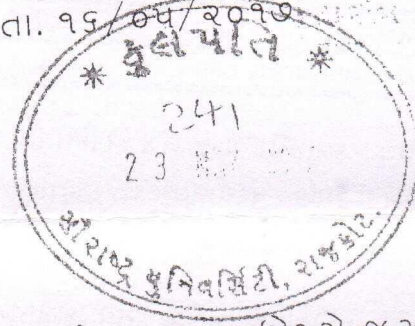 તા. ૧૬/૦૫/૨૦૧૭
* કુલપતિ *
241
23
સૌરાષ્ટ્ર યુનિવર્સિટી, રાજકોટ.